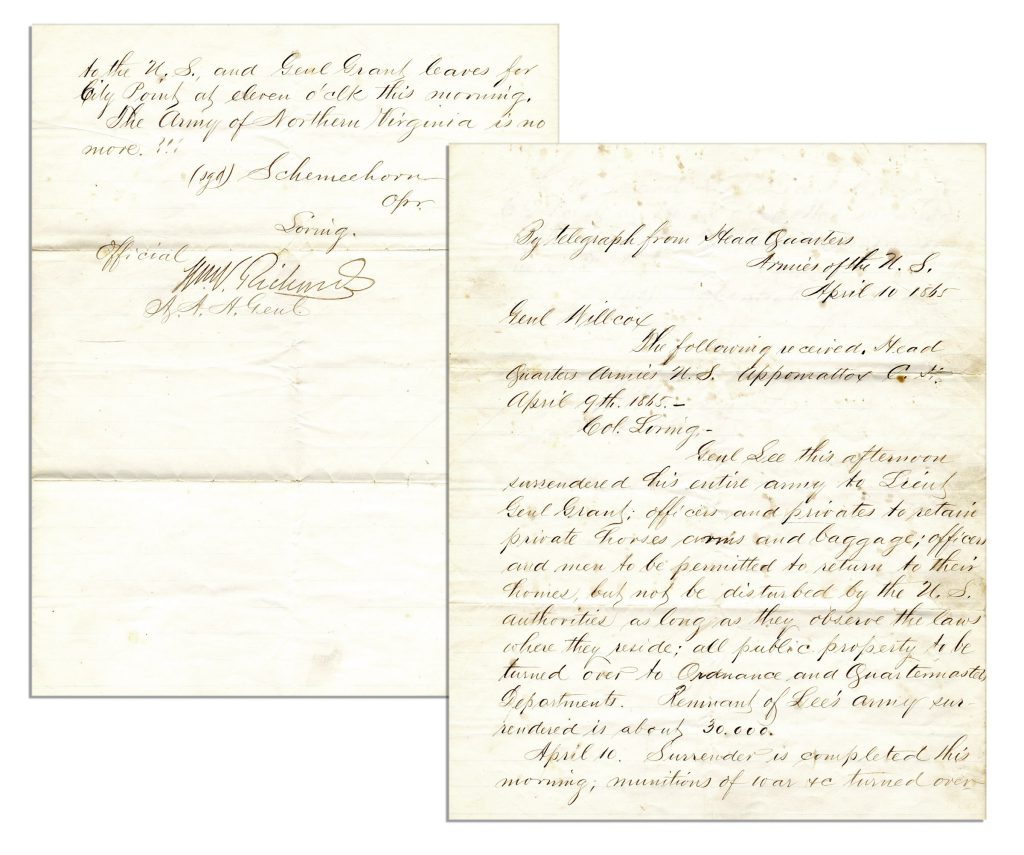 By telegraph from Head Quarters
Armies of the U. S.
April 10 1865
Genl Willcox
The following received. Head
Quarters Armies U.S. Appomattox C. H.
April 9th. 1865. –
Col. Loring, –
Genl Lee this afternoon
surrendered his entire army to Lieut
Genl Grant; officers and privates to retain
private horses arms and baggage; officers
and men to be permitted to return to their
homes, but not be disturbed by the U. S.
authorities as long as they observe the laws
where they reside; all public property to be
turned over to Ordnance and Quartermasters
Departments. Remnant of Lee's army sur-
rendered is about 30.000.
April 10. Surrender is completed this
morning; munitions of war &c turned over
to the U. S., and Genl Grant leaves for
City Point at eleven o'clk this morning.
The Army of Northern Virginia is no
more. !!!
(sgd) Schemeehorn
Opr.
Loring.
Official
Wm V. Richards
A. A. A. Genl